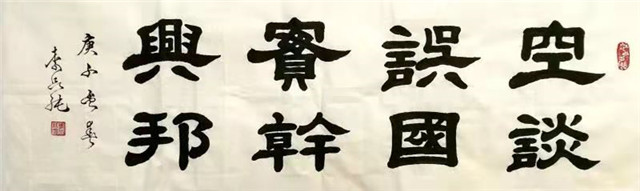 空談
誤國
實幹
興邦
庚子